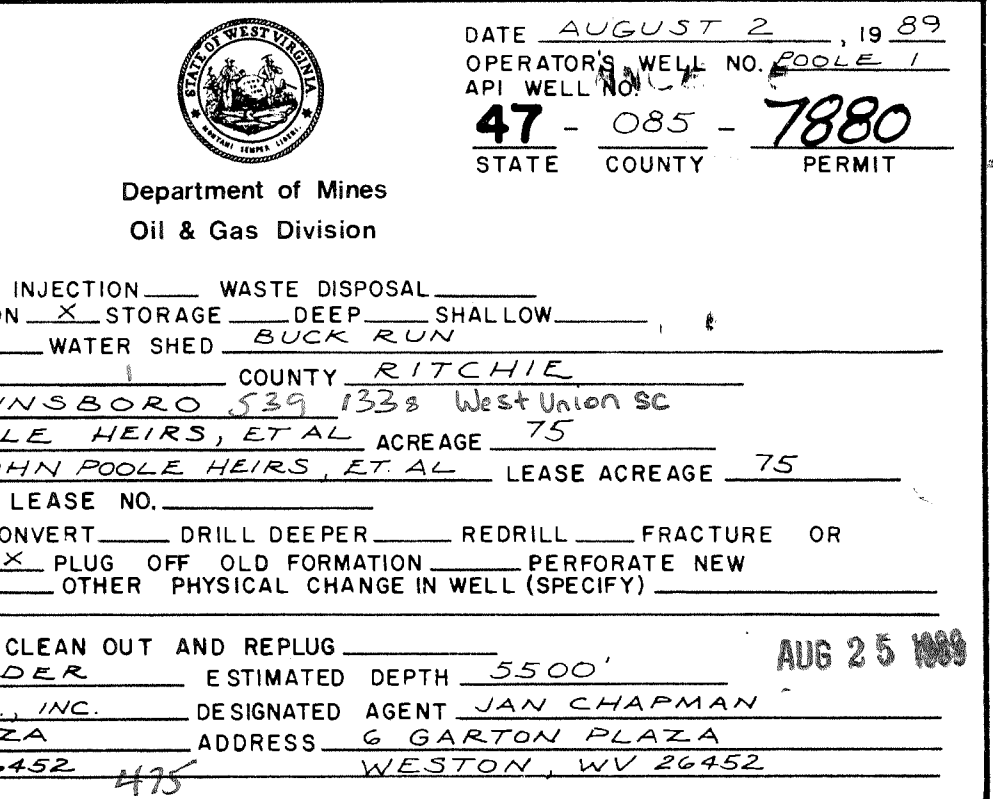 STATE OF WEST VIRGINIA
MONTANI SEMPER LIBERI
DATE AUGUST 2, 19 89
OPERATOR'S WELL NO. POOLE 1
API WELL NO.
47 - 085 - 7880
STATE COUNTY PERMIT
Department of Mines
Oil & Gas Division
INJECTION WASTE DISPOSAL
N X STORAGE DEEP SHALLOW
WATER SHED BUCK RUN
COUNTY RITCHIE
NSBORO 539 1338 West Union SC
LE HEIRS, ET AL ACREAGE 75
HN POOLE HEIRS, ET. AL LEASE ACREAGE 75
LEASE NO.
ONVERT DRILL DEEPER REDRILL FRACTURE OR
X PLUG OFF OLD FORMATION PERFORATE NEW
OTHER PHYSICAL CHANGE IN WELL (SPECIFY)
CLEAN OUT AND REPLUG
AUG 25 1989
DER ESTIMATED DEPTH 5500'
., INC. DESIGNATED AGENT JAN CHAPMAN
ZA ADDRESS 6 GARTON PLAZA
6452 WESTON, WV 26452
475